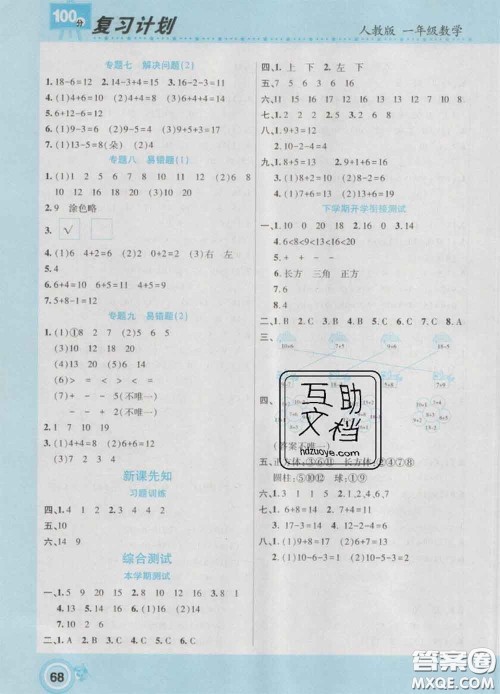 100分
复习计划
人教版 一年级数学
专题七 解决问题(2)
1. 18-6=12 2. 14-3+4=15 3. 18-2-5=11
4. (1)4+4=8 (2)4+6=10
5. (1)13-5=8(朵) (2)9+4=13
专题八 易错题(1)
1. (1)1 2 5 7 8 10 11 12 (2)6 8
10 12 16 18 20 (3)20 15 10
2. 9 涂色略
3. √
4. (1)6 4+2=6 (2)4 2+2=4 (3)右 左
5. 4
6. 6+4=10 4+6=10 10-4=6 10-6=4
7. 5+8-1=12
专题九 易错题(2)
1. (1)①8 2 7 (2)5 5 5
(3)10 12 18 20
(4)13 20 (5)6 14
(6)> = < = < >
(7)+ - - 5(不唯一)
- + - 2(不唯一)
4. (1)9-3=6 (2)8+9=17
1. 18 20
新课先知
习题训练
四、1. 4 1 2. 3 4 3. 4 4
五、10
六、14 9
综合测试
本学期测试
一、1. 5 9 15 20 2. 8 10 12 16 3. 1 8
4. 7 13 5. 6 16 6. 20 19 7. 17
8. 13 9. 6
二、1. A 2. B 3. C 4. C 5. C
四、1. 上 下 2. 左 下
五、7 15 8 3 6 5
六、11 15 18 11 17 12 12 7 10 8
七、1. > 2. < 3. > 4. > 5. < 6. <
八、1. 9+3=12
2. 10-2-4=4
九、1. 8+5=13 2. 1+9+6=16
3. (1)10-4=6 (2)7+6=13
下学期开学衔接测试
一、1. 10 0 20 18 2. 19 17 3. 18
4. 6<8<9<13<16<20
5. > > < >
6. 长方 三角 正方
7. 8
8. >
二、1. B 2. C 3. A 4. C 5. B 6. C 7. C 8. A
三、
10+6 7+5
四、
(答案不唯一)
五、正方体:③⑥⑪ 长方体:②④⑦⑧
圆柱:⑤⑩⑫ 球:①⑨
六、3 1 1 5 1. 1,2,4,6,7
七、1. 6+8=14 2. 6+1+7=14
3. 17-3=14 4. 9-2+4=11
八、1. (1)9+8=17 (2)8+7=15
2. (1)10-6-3=1 (2)10-5-3=2
互助
文档
hdzuoye.com
68
答案圈
MXQE.COM